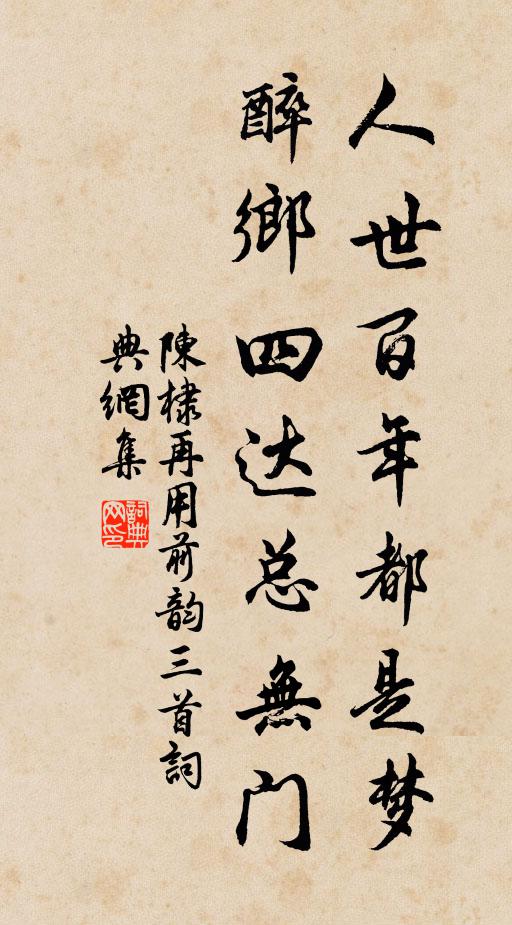 人世百年都是梦
醉鄉四达总無门
陳棣再用前韵三首詞
典網集
詞典网印